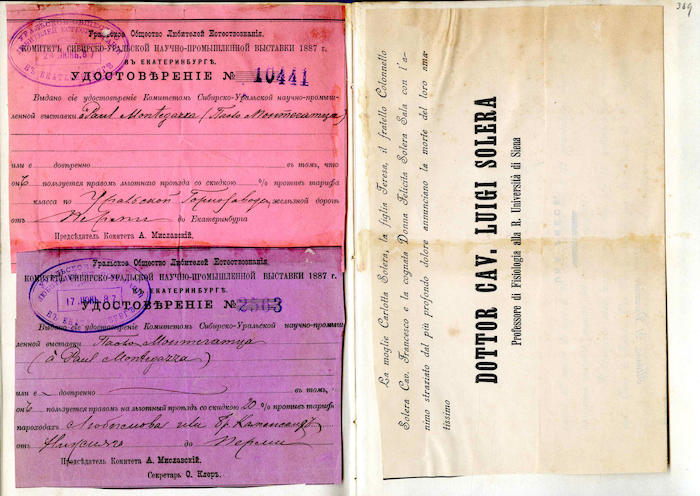 369
Уральское Общество Любителей Естествознания.
КОМИТЕТЪ СИБИРСКО-УРАЛЬСКОЙ НАУЧНО-ПРОМЫШЛЕННОЙ ВЫСТАВКИ 1887 г.
ВЪ ЕКАТЕРИНБУРГѢ.
УДОСТОВѢРЕНІЕ № 10441
Выдано сіе удостовѣреніе Комитетомъ Сибирско-Уральской научно-промыш-
ленной выставки à Paul Montegazza (Паоло Монтегатца)
или е достренно въ томъ, что
онъ пользуется правомъ льготнаго проѣзда со скидкою % противъ тарифа
класса по Уральской Горнозавод. желѣзной дорогѣ
отъ Перми до Екатеринбурга
Предсѣдатель Комитета А. Миславскій.
Уральское Общество Любителей Естествознанія.
КОМИТЕТЪ СИБИРСКО-УРАЛЬСКОЙ НАУЧНО-ПРОМЫШЛЕННОЙ ВЫСТАВКИ 1887 г.
ЕКАТЕРИНБУРГѢ.
17 ІЮНЬ 87
УДОСТОВѢРЕНІЕ № 2503
Выдано сіе удостовѣреніе Комитетомъ Сибирско-Уральской научно-промыш-
ленной выставки Паоло Монтегатца
(à Paul Montegazza)
или е достренно въ томъ,
онъ пользуется правомъ на льготный проѣздъ со скидкою 20 % противъ тариф
пароходахъ Любимова или Бр. Каменскихъ
отъ Нижняго до Перми
Предсѣдатель Комитета А. Миславскій.
Секретарь О. Клеръ.
La moglie Carlotta Solera, la figlia Teresa, il fratello Colonnello
Solera Cav. Francesco e la cognata Donna Felicita Solera Sala con l'a-
nimo straziato dal più profondo dolore annunciano la morte del loro ama-
tissimo
DOTTOR CAV. LUIGI SOLERA
Professore di Fisiologia alla R. Università di Siena